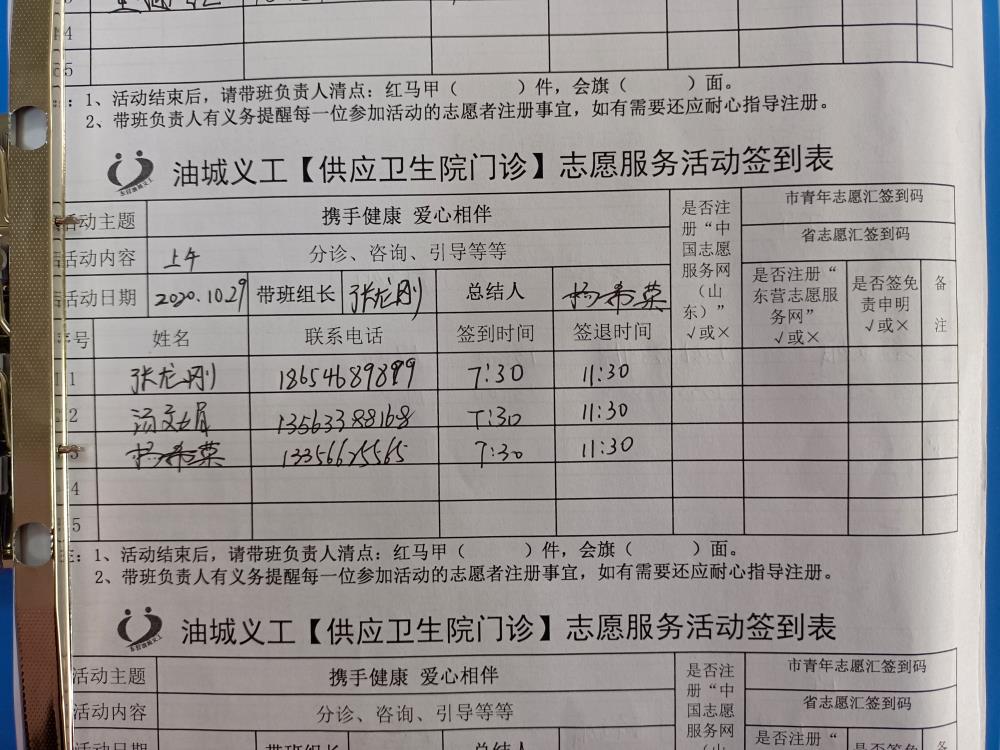 4
5
1、活动结束后，请带班负责人清点：红马甲（ ）件，会旗（ ）面。
2、带班负责人有义务提醒每一位参加活动的志愿者注册事宜，如有需要还应耐心指导注册。
油城义工【供应卫生院门诊】志愿服务活动签到表
活动主题 携手健康 爱心相伴 是否注册“中国志愿服务网（山东）”√或× 市青年志愿汇签到码
活动内容 上午 分诊、咨询、引导等等 省志愿汇签到码
活动日期 2020.10.29 带班组长 张龙刚 总结人 杨希荣 是否注册“东营志愿服务网”√或× 是否签免责申明√或× 备注
序号 姓名 联系电话 签到时间 签退时间
1 张龙刚 18654689899 7:30 11:30
2 汤文娟 13563388168 7:30 11:30
3 杨希荣 13356625565 7:30 11:30
4
5
注：1、活动结束后，请带班负责人清点：红马甲（ ）件，会旗（ ）面。
2、带班负责人有义务提醒每一位参加活动的志愿者注册事宜，如有需要还应耐心指导注册。
油城义工【供应卫生院门诊】志愿服务活动签到表
活动主题 携手健康 爱心相伴 是否注册“中国志愿服务网（山 市青年志愿汇签到码
活动内容 分诊、咨询、引导等等 省志愿汇签到码
活动日期 带班组长 总结人 是否注册“ 是否签免 备